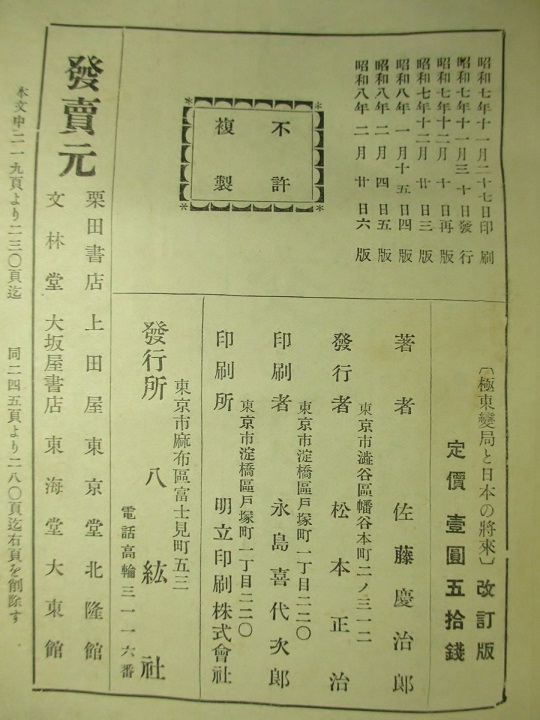 昭和七年十一月二十七日印刷
昭和七年十一月三十日發行
昭和七年十二月十日再版
昭和七年十二月廿日三版
昭和八年一月十五日四版
昭和八年二月四日五版
昭和八年二月廿日六版
不許
複製
〔極東變局と日本の將來〕改訂版
定價壹圓五拾錢
著者 佐藤慶治郎
東京市澁谷區幡谷本町二ノ三一二
發行者 松本正治
東京市淀橋區戸塚町一丁目二二〇
印刷者 永島喜代次郎
東京市淀橋區戸塚町一丁目二二〇
印刷所 明立印刷株式會社
東京市麻布區富士見町五三
發行所 八紘社
電話高輪三一一六番
發賣元
栗田書店 上田屋 東京堂 北隆館
文林堂 大坂屋書店 東海堂 大東館
本文中二一九頁より二三〇頁迄 同二四五頁より二八〇頁迄右頁を削除す